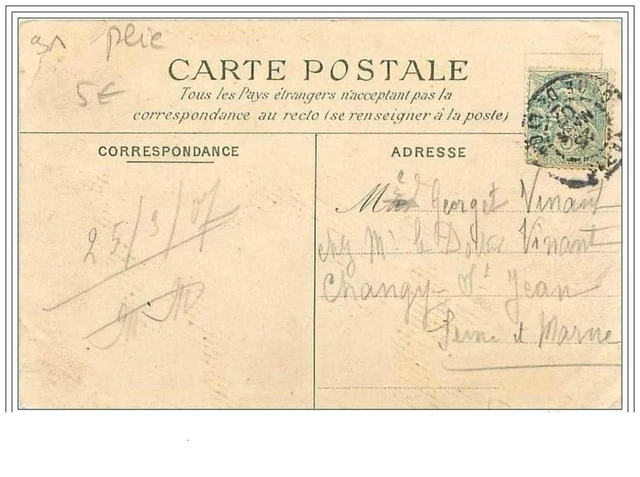 91 plie
5€
CARTE POSTALE
Tous les Pays étrangers n'acceptent pas la
correspondance au recto (se renseigner à la poste)
CORRESPONDANCE
ADRESSE
25/3/07
Georget Vinant
chez Mr le Docteur Vinant
Changy-St Jean
Seine et Marne